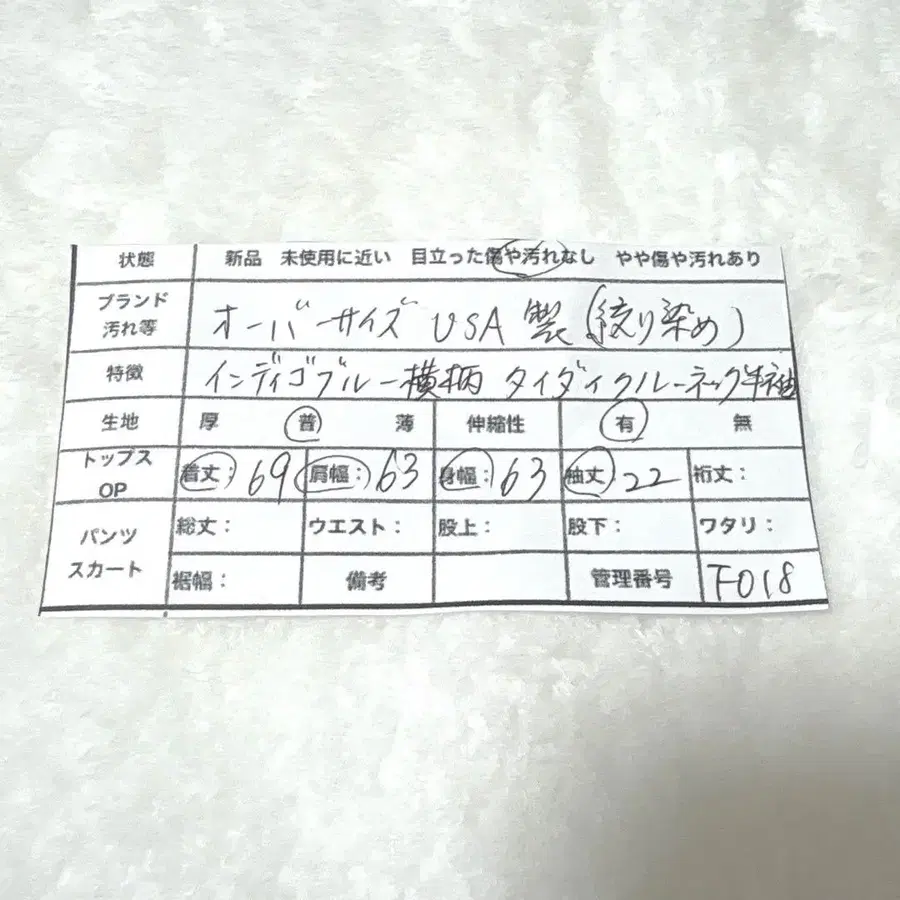 状態 新品 未使用に近い 目立った傷や汚れなし やや傷や汚れあり
ブランド
汚れ等 オーバーサイズ USA製(絞り染め)
特徴 インディゴブルー横柄 タイダイクルーネック半袖
生地 厚 普 薄 伸縮性 有 無
トップス
OP 着丈:69 肩幅:63 身幅:63 袖丈 22 裄丈:
パンツ
スカート 総丈: ウエスト: 股上: 股下: ワタリ:
裾幅: 備考 管理番号 F018